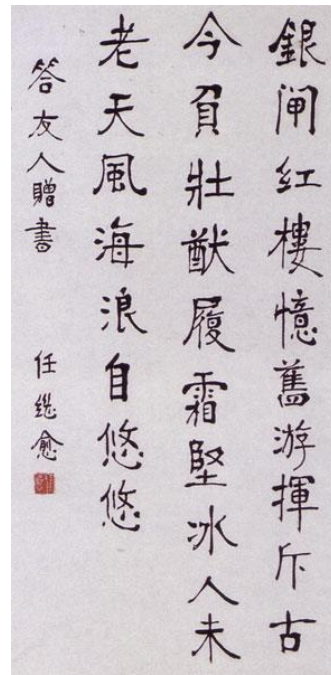 銀闸紅樓憶舊游揮斥古
今負壯猷履霜堅冰人未
老天風海浪自悠悠
答友人贈書
任繼愈